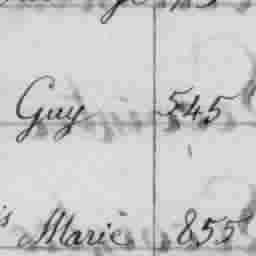 Guy 545
is Marie 855